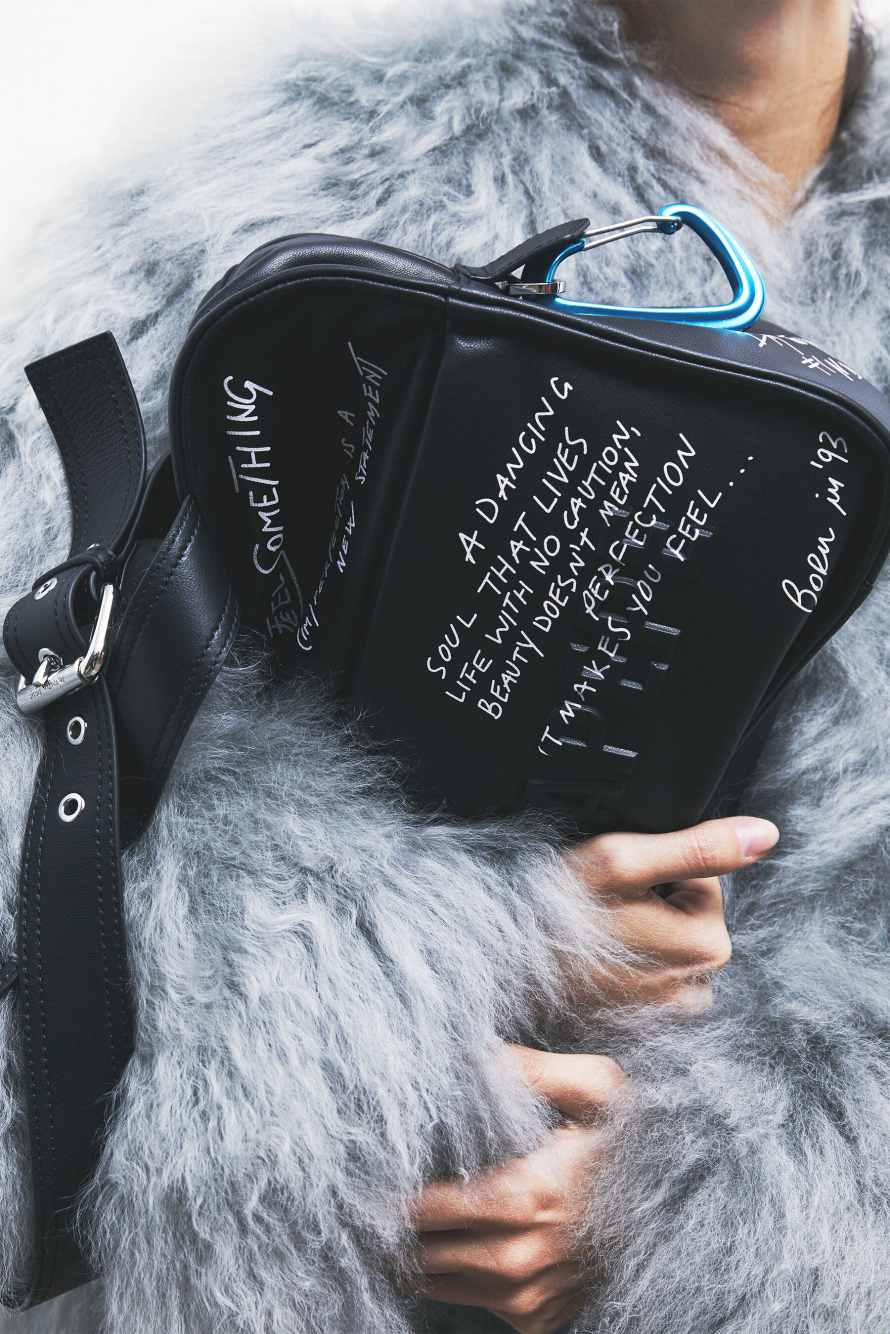 FEEL SOMETHING
(IM)PERFECTION IS A
NEW STATEMENT
A DANCING
SOUL THAT LIVES
LIFE WITH NO CAUTION,
BEAUTY DOESN'T MEAN
PERFECTION
'T MAKES YOU FEEL....
Born in '93